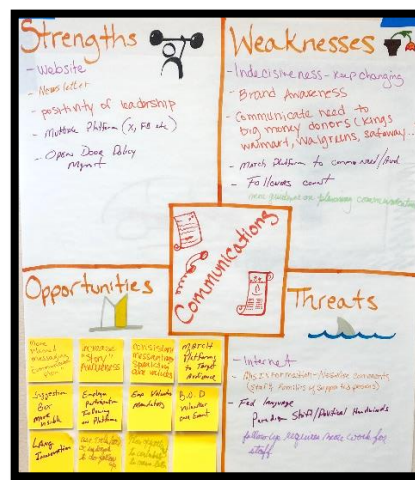 Strengths
- Website
- Newsletter
- positivity of leadership
- Multiple Platform (X, FB etc)
- Open Door Policy
Mgmt
Weaknesses
- Indecisiveness - keep changing
- Brand Awareness
- Communicate need to
big money donors (kings
walmart, walgreens, safeway...
- Match Platform to comm need/Aud
- Followers count
Communications
Opportunities
More
Planned
messaging
Communication
Plan
increase
"Story"
Awareness
consistent
messaging
Spanish
MATCH
Platforms
to Target
Audience
Suggestion
Box
more
visible
Employee
participation
Following
on Platform
Emp Volunteer
Mandatory
B.O.D
volunteer
one Event
LANg.
Threats
- Internet
- Misinformation - Negative comments
(staff, Families of supported persons)
- Fed language
Paradigm Shift/Political Headwinds
follow up requires more work for
staff